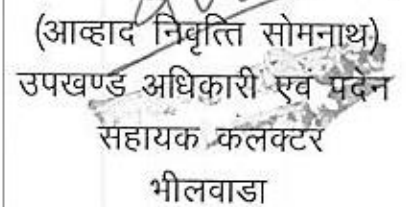 (आव्हाद निवृत्ति सोमनाथ)
उपखण्ड अधिकारी एव पदेन
सहायक कलक्टर
भीलवाडा